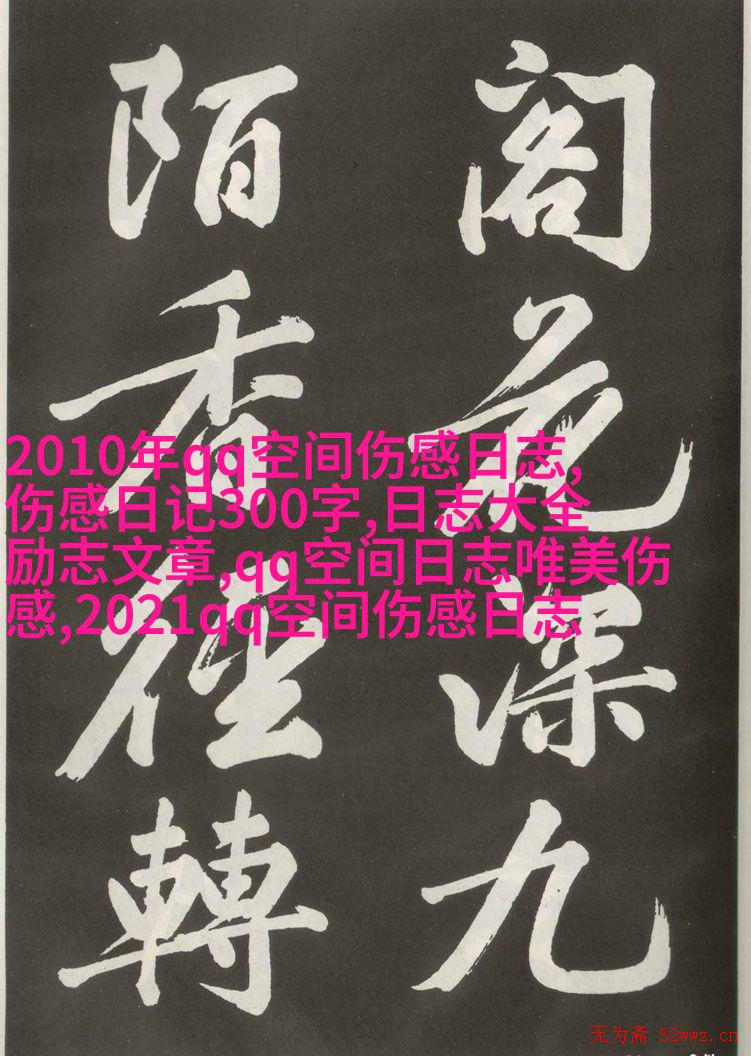 閣花深九
陌香徑轉
2010年qq空间伤感日志,
伤感日记300字,日志大全
励志文章,qq空间日志唯美伤
感,2021qq空间伤感日志
无为斋 52wwz.cn